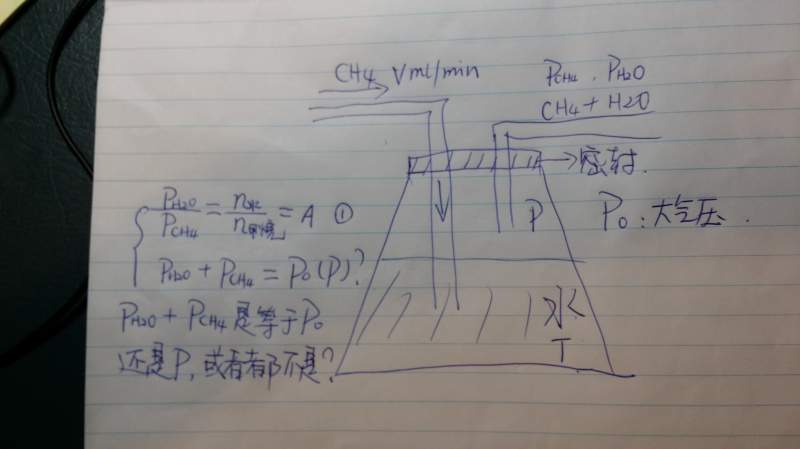 CH4 Vml/min
PCH4 . PH2O
CH4 + H2O
密封.
P
P0:大气压.
PH2O/PCH4 = n水/n甲烷 = A ①
PH2O + PCH4 = P0(P)?
PH2O + PCH4 是等于P0
还是P,或者都不是?
水
T